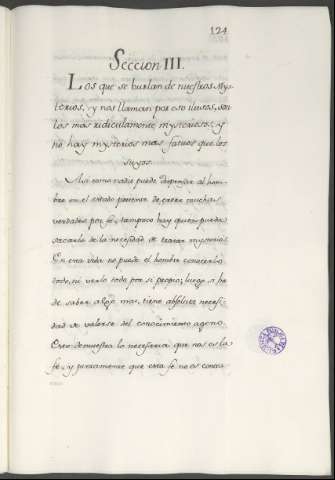 124
Seccion III.
Los que se burlan de nuestros Mys-
terios, y nos llaman por esto ilusos, son
los mas ridiculamente mysteriosos: y
no hay mysterios mas fatuos que los
suyos.
Asi como nadie puede despojar al hom-
bre en el estado presente de creer muchas
verdades por fe, tampoco hay quien pueda
sacarlo de la necesidad de tratar mysterios.
En esta vida no puede el hombre conocerlo
todo, ni verlo todo por sí propio; luego si ha
de saber algo mas, tiene absoluta necesi-
dad de valerse del conocimiento ageno.
Esto demuestra lo necesaria que nos es la
fe, y juntamente que esta fe no es contra